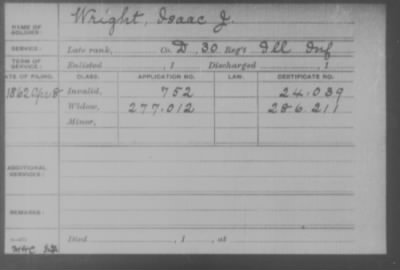 NAME OF SOLDIER: Wright, Isaac J.
SERVICE: Late rank, Co. D, 30 Reg't Ill Inf
TERM OF SERVICE: Enlisted , 1 Discharged , 1
DATE OF FILING. CLASS. APPLICATION NO. LAW. CERTIFICATE NO.
1862 Apr 8 Invalid, 752 24.039
Widow, 277.012 286.211
Minor,
ADDITIONAL SERVICES:
REMARKS:
Died , 1 , at